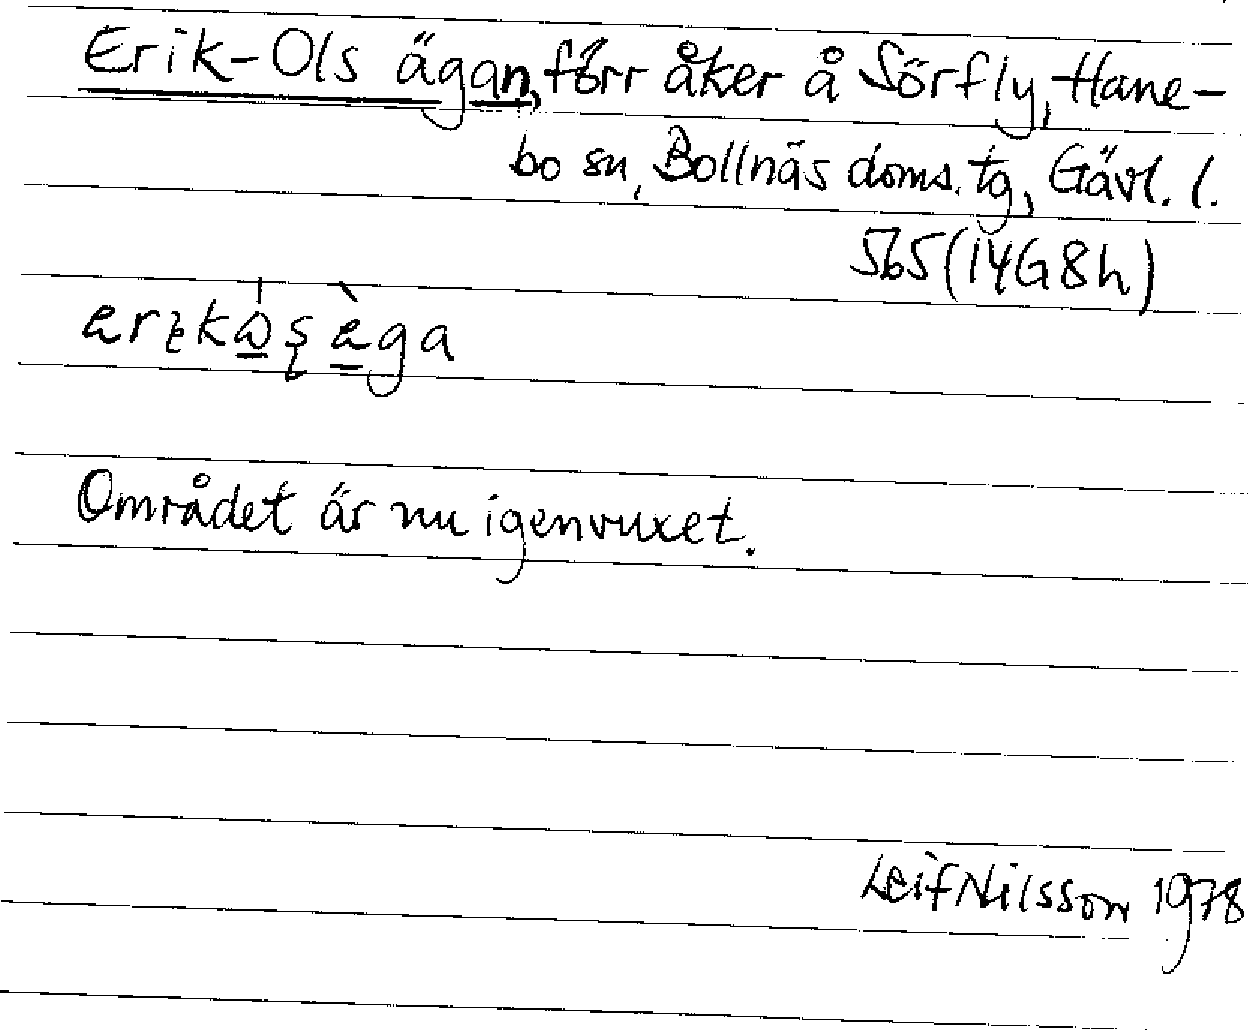 Erik-Ols ägan, förr åker å Sörfly, Hane-
bo sn, Bollnäs doms. tg, Gävl. l.
565 (14G8h)
Området är nu igenvuxet.
Leif Nilsson 1978